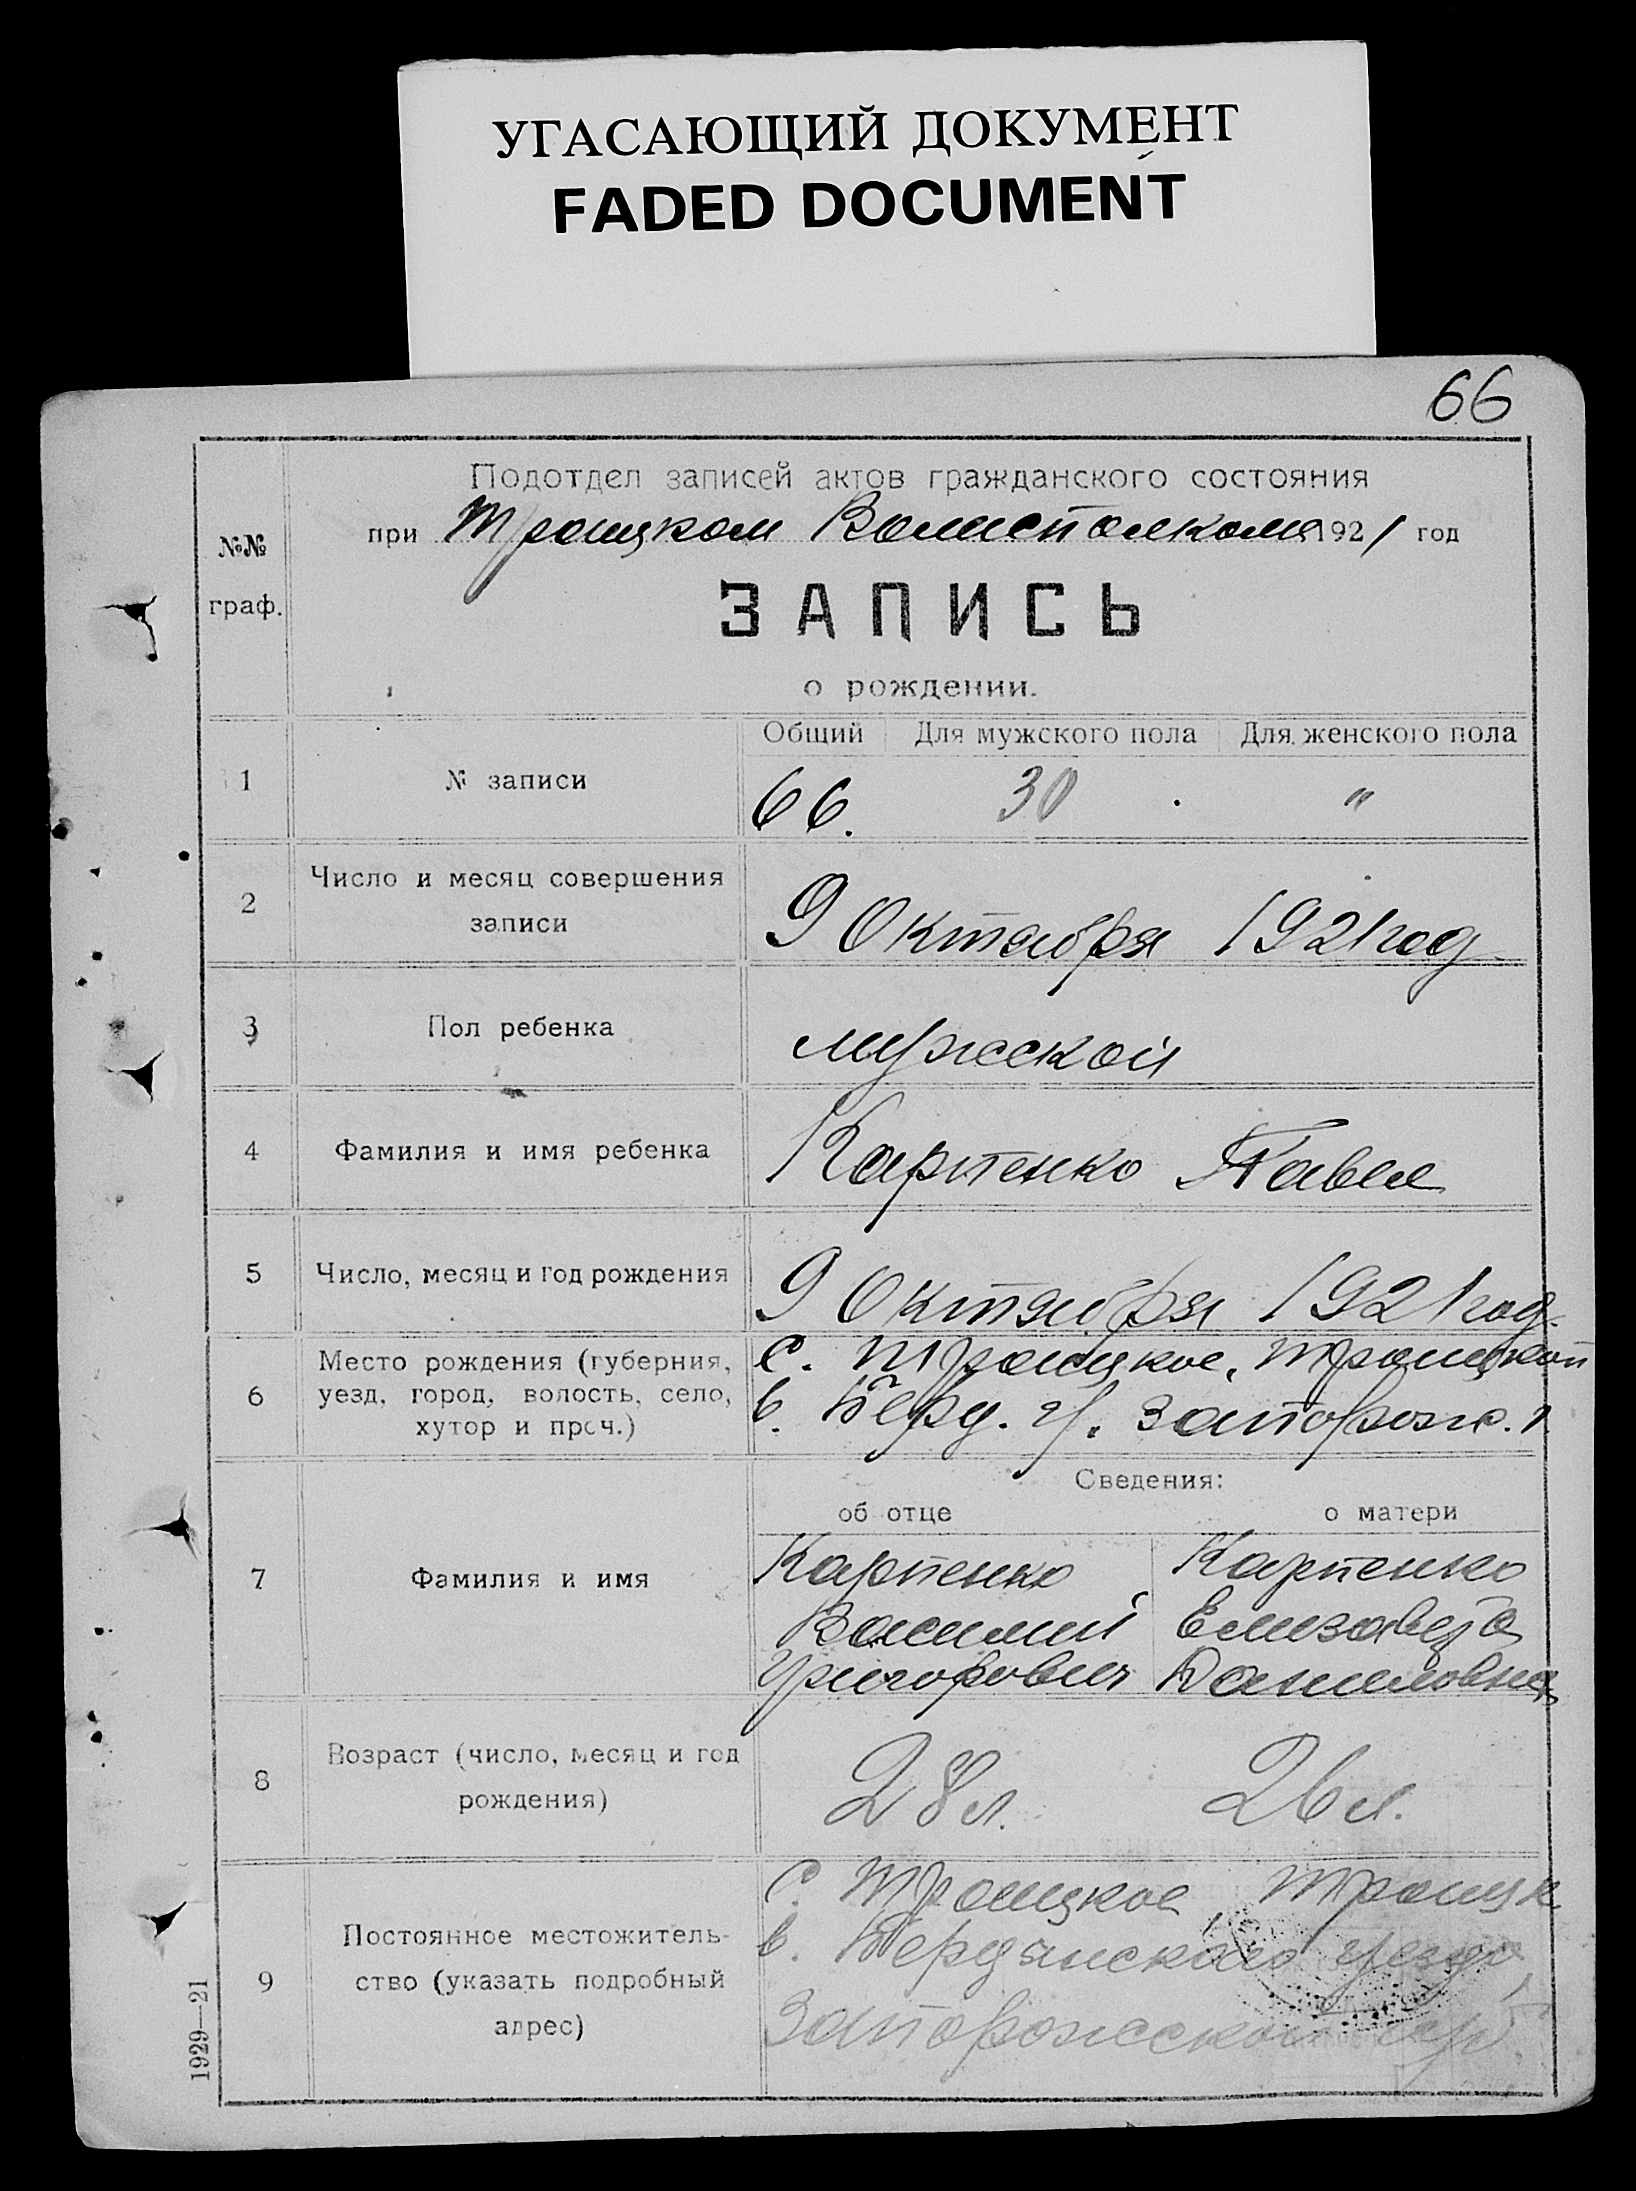 УГАСАЮЩИЙ ДОКУМЕНТ
FADED DOCUMENT
66
№№ граф.
Подотдел записей актов гражданского состояния
при Троицком Волисполкоме 1921 год
ЗАПИСЬ
о рождении.
Общий Для мужского пола Для женского пола
1 № записи 66. 30 "
2 Число и месяц совершения
записи 9 Октября 1921 год
3 Пол ребенка мужской
4 Фамилия и имя ребенка Карпенко Павел
5 Число, месяц и год рождения 9 Октября 1921 год.
6 Место рождения (губерния, с. Троицкое, Троицкой
уезд, город, волость, село, в. Берд. у. Запорож. г.
хутор и проч.)
Сведения:
об отце о матери
7 Фамилия и имя
Карпенко Карпенко
Василий Елизавета
Григорович Даниловна
8 Возраст (число, месяц и год
рождения) 28 л. 26 л.
9 Постоянное местожитель-
ство (указать подробный
адрес)
с. Троицкое, Троицк
в. Бердянского уезда,
Запорожской губ.
1929—21